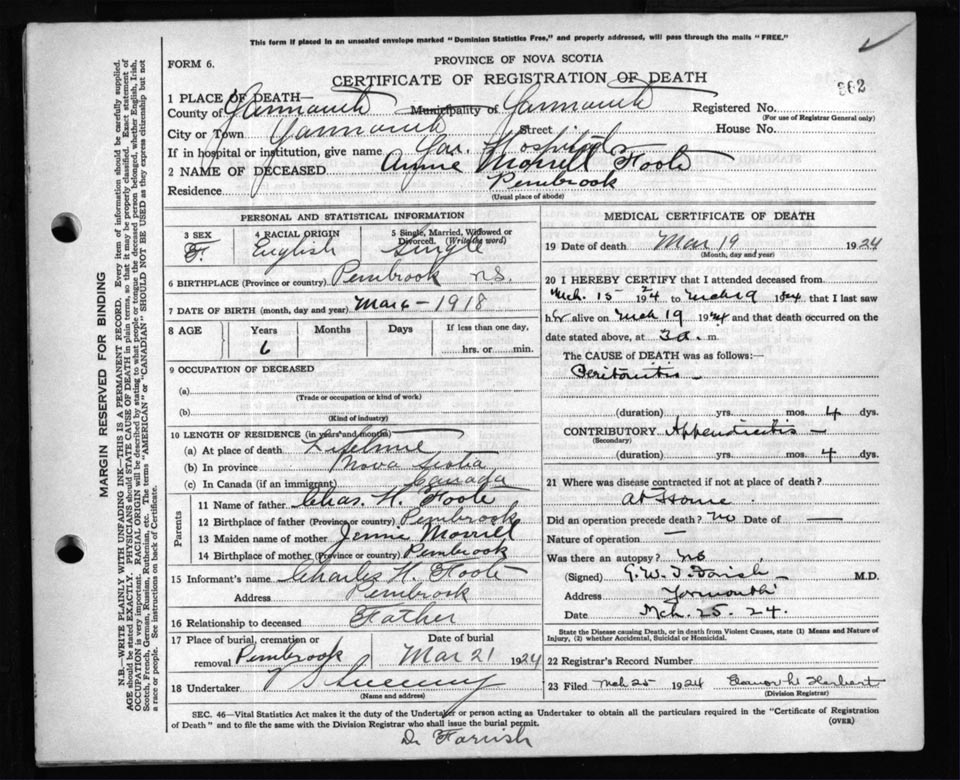 This form if placed in an unsealed envelope marked "Dominion Statistics Free," and properly addressed, will pass through the mails "FREE."
FORM 6.
PROVINCE OF NOVA SCOTIA
CERTIFICATE OF REGISTRATION OF DEATH
1 PLACE OF DEATH—
County of Yarmouth Municipality of Yarmouth Registered No.
(For use of Registrar General only)
City or Town Yarmouth Street House No.
If in hospital or institution, give name Yar. Hospital
2 NAME OF DECEASED Annie Morrell Foote
Residence Pembrook
(Usual place of abode)
PERSONAL AND STATISTICAL INFORMATION
3 SEX 4 RACIAL ORIGIN 5 Single, Married, Widowed or Divorced. (Write the word)
F. English Single
6 BIRTHPLACE (Province or country) Pembrook N.S.
7 DATE OF BIRTH (month, day and year) Mar 6 - 1918
8 AGE Years Months Days If less than one day,
6 hrs. or min.
9 OCCUPATION OF DECEASED
(a)
(Trade or occupation or kind of work)
(b)
(Kind of industry)
10 LENGTH OF RESIDENCE (in years and months)
(a) At place of death Lifetime
(b) In province Nova Scotia
(c) In Canada (if an immigrant) Canada
Parents
11 Name of father Chas. H. Foote
12 Birthplace of father (Province or country) Pembrook
13 Maiden name of mother Jennie Morrell
14 Birthplace of mother (Province or country) Pembrook
15 Informant's name Charles H. Foote
Address Pembrook
16 Relationship to deceased Father
17 Place of burial, cremation or removal Pembrook Date of burial Mar 21 1924
18 Undertaker V S Sweeny
(Name and address)
MEDICAL CERTIFICATE OF DEATH
19 Date of death Mar 19 1924
(Month, day and year)
20 I HEREBY CERTIFY that I attended deceased from
Mch. 15 1924 to Mch 19 1924 that I last saw
her alive on Mch 19 1924 and that death occurred on
date stated above, at 3 a. m.
The CAUSE of DEATH was as follows:—
Peritonitis —
(duration) yrs. mos. 4 dys.
CONTRIBUTORY Appendicitis —
(Secondary)
(duration) yrs. mos. 4 dys.
21 Where was disease contracted if not at place of death?
At Home.
Did an operation precede death? No Date of —
Nature of operation —
Was there an autopsy? No
(Signed) G. W. T. Farish M.D.
Address Yarmouth
Date Mch. 25. 24.
State the Disease causing Death, or in death from Violent Causes, state (1) Means and Nature of
Injury, (2) whether Accidental, Suicidal or Homicidal.
22 Registrar's Record Number
23 Filed Mch 25 1924 Eleanor M Herbert
(Division Registrar)
SEC. 46—Vital Statistics Act makes it the duty of the Undertaker or person acting as Undertaker to obtain all the particulars required in the "Certificate of Registration
of Death" and to file the same with the Division Registrar who shall issue the burial permit. (OVER)
Dr Farish
MARGIN RESERVED FOR BINDING
N.B.—WRITE PLAINLY WITH UNFADING INK—THIS IS A PERMANENT RECORD. Every item of information should be carefully supplied.
AGE should be stated EXACTLY. PHYSICIANS should STATE CAUSE OF DEATH in plain terms, so that it may be properly classified. Exact statement of
OCCUPATION is very important. RACIAL ORIGIN will be described by stating to what people or tongue the deceased person belonged, whether English, Irish,
Scotch, French, German, Russian, Ruthenian, etc. The terms "AMERICAN" or "CANADIAN" SHOULD NOT BE USED as they express citizenship but not
a race or people. See instructions on back of Certificate.